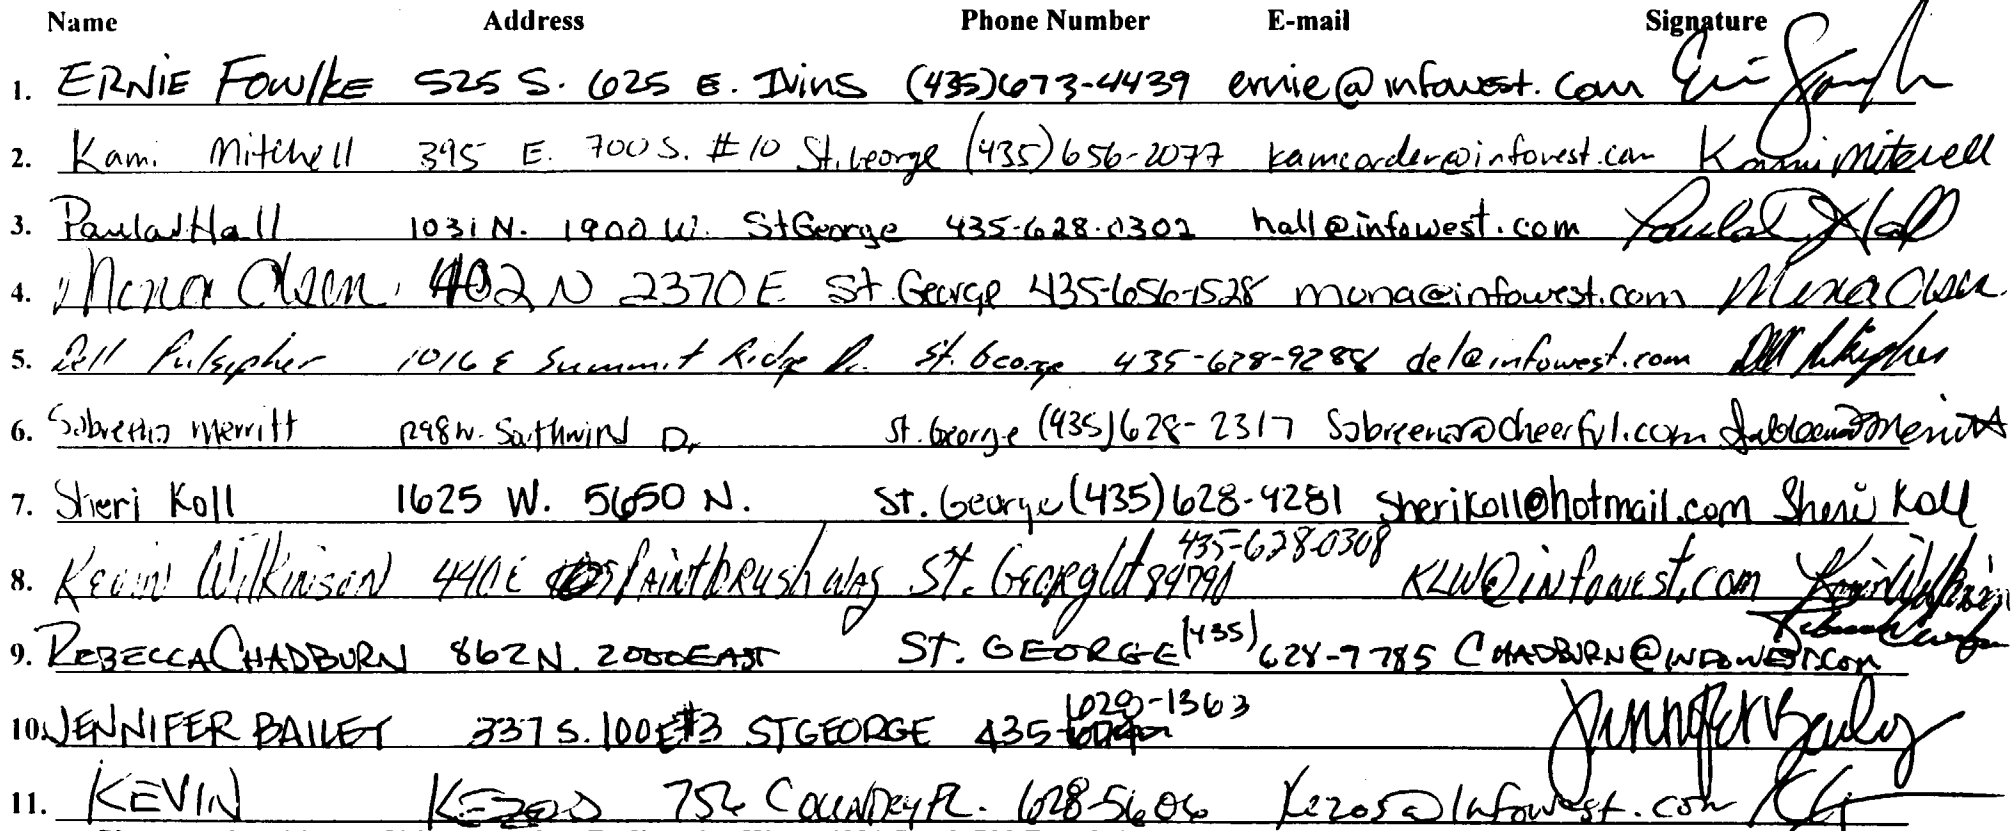 Name Address Phone Number E-mail Signature
1. ERNIE FOWLKE 525 S. 625 E. IVINS (435)673-4439 ernie@infowest.com
2. Kami Mitchell 395 E. 700 S. #10 St. George (435)656-2077 kamcorder@infowest.com Kami Mitchell
3. Paula Hall 1031 N. 1900 W. St George 435-628-0302 hall@infowest.com Hall
4. Mona Olsen 402 N 2370 E St. George 435-656-1528 mona@infowest.com Mona Olsen
5. Dell Pulsipher 1016 E Summit Ridge Dr. St. George 435-628-9288 del@infowest.com Dell Pulsipher
6. Merritt 1298 W. Southwind Dr St. George (435)628-2317 Sabreena@cheerful.com Merritt
7. Sheri Koll 1625 W. 5650 N. St. George (435)628-4281 Sherikoll@hotmail.com Sheri Koll
435-628-0308
8. Kevin Wilkinson 440 E Paintbrush Way St. George Ut 84790 KLW@infowest.com Kevin Wilkinson
9. REBECCA CHADBURN 862 N. 2000 EAST ST. GEORGE (435) 628-7785 CHADBURN@INFOWEST.COM
629-1363
10. JENNIFER BAILEY 337 S. 100 E #3 ST GEORGE 435- Jennifer Bailey
11. KEVIN 756 Country 628-5606 Kezos@Infowest.com